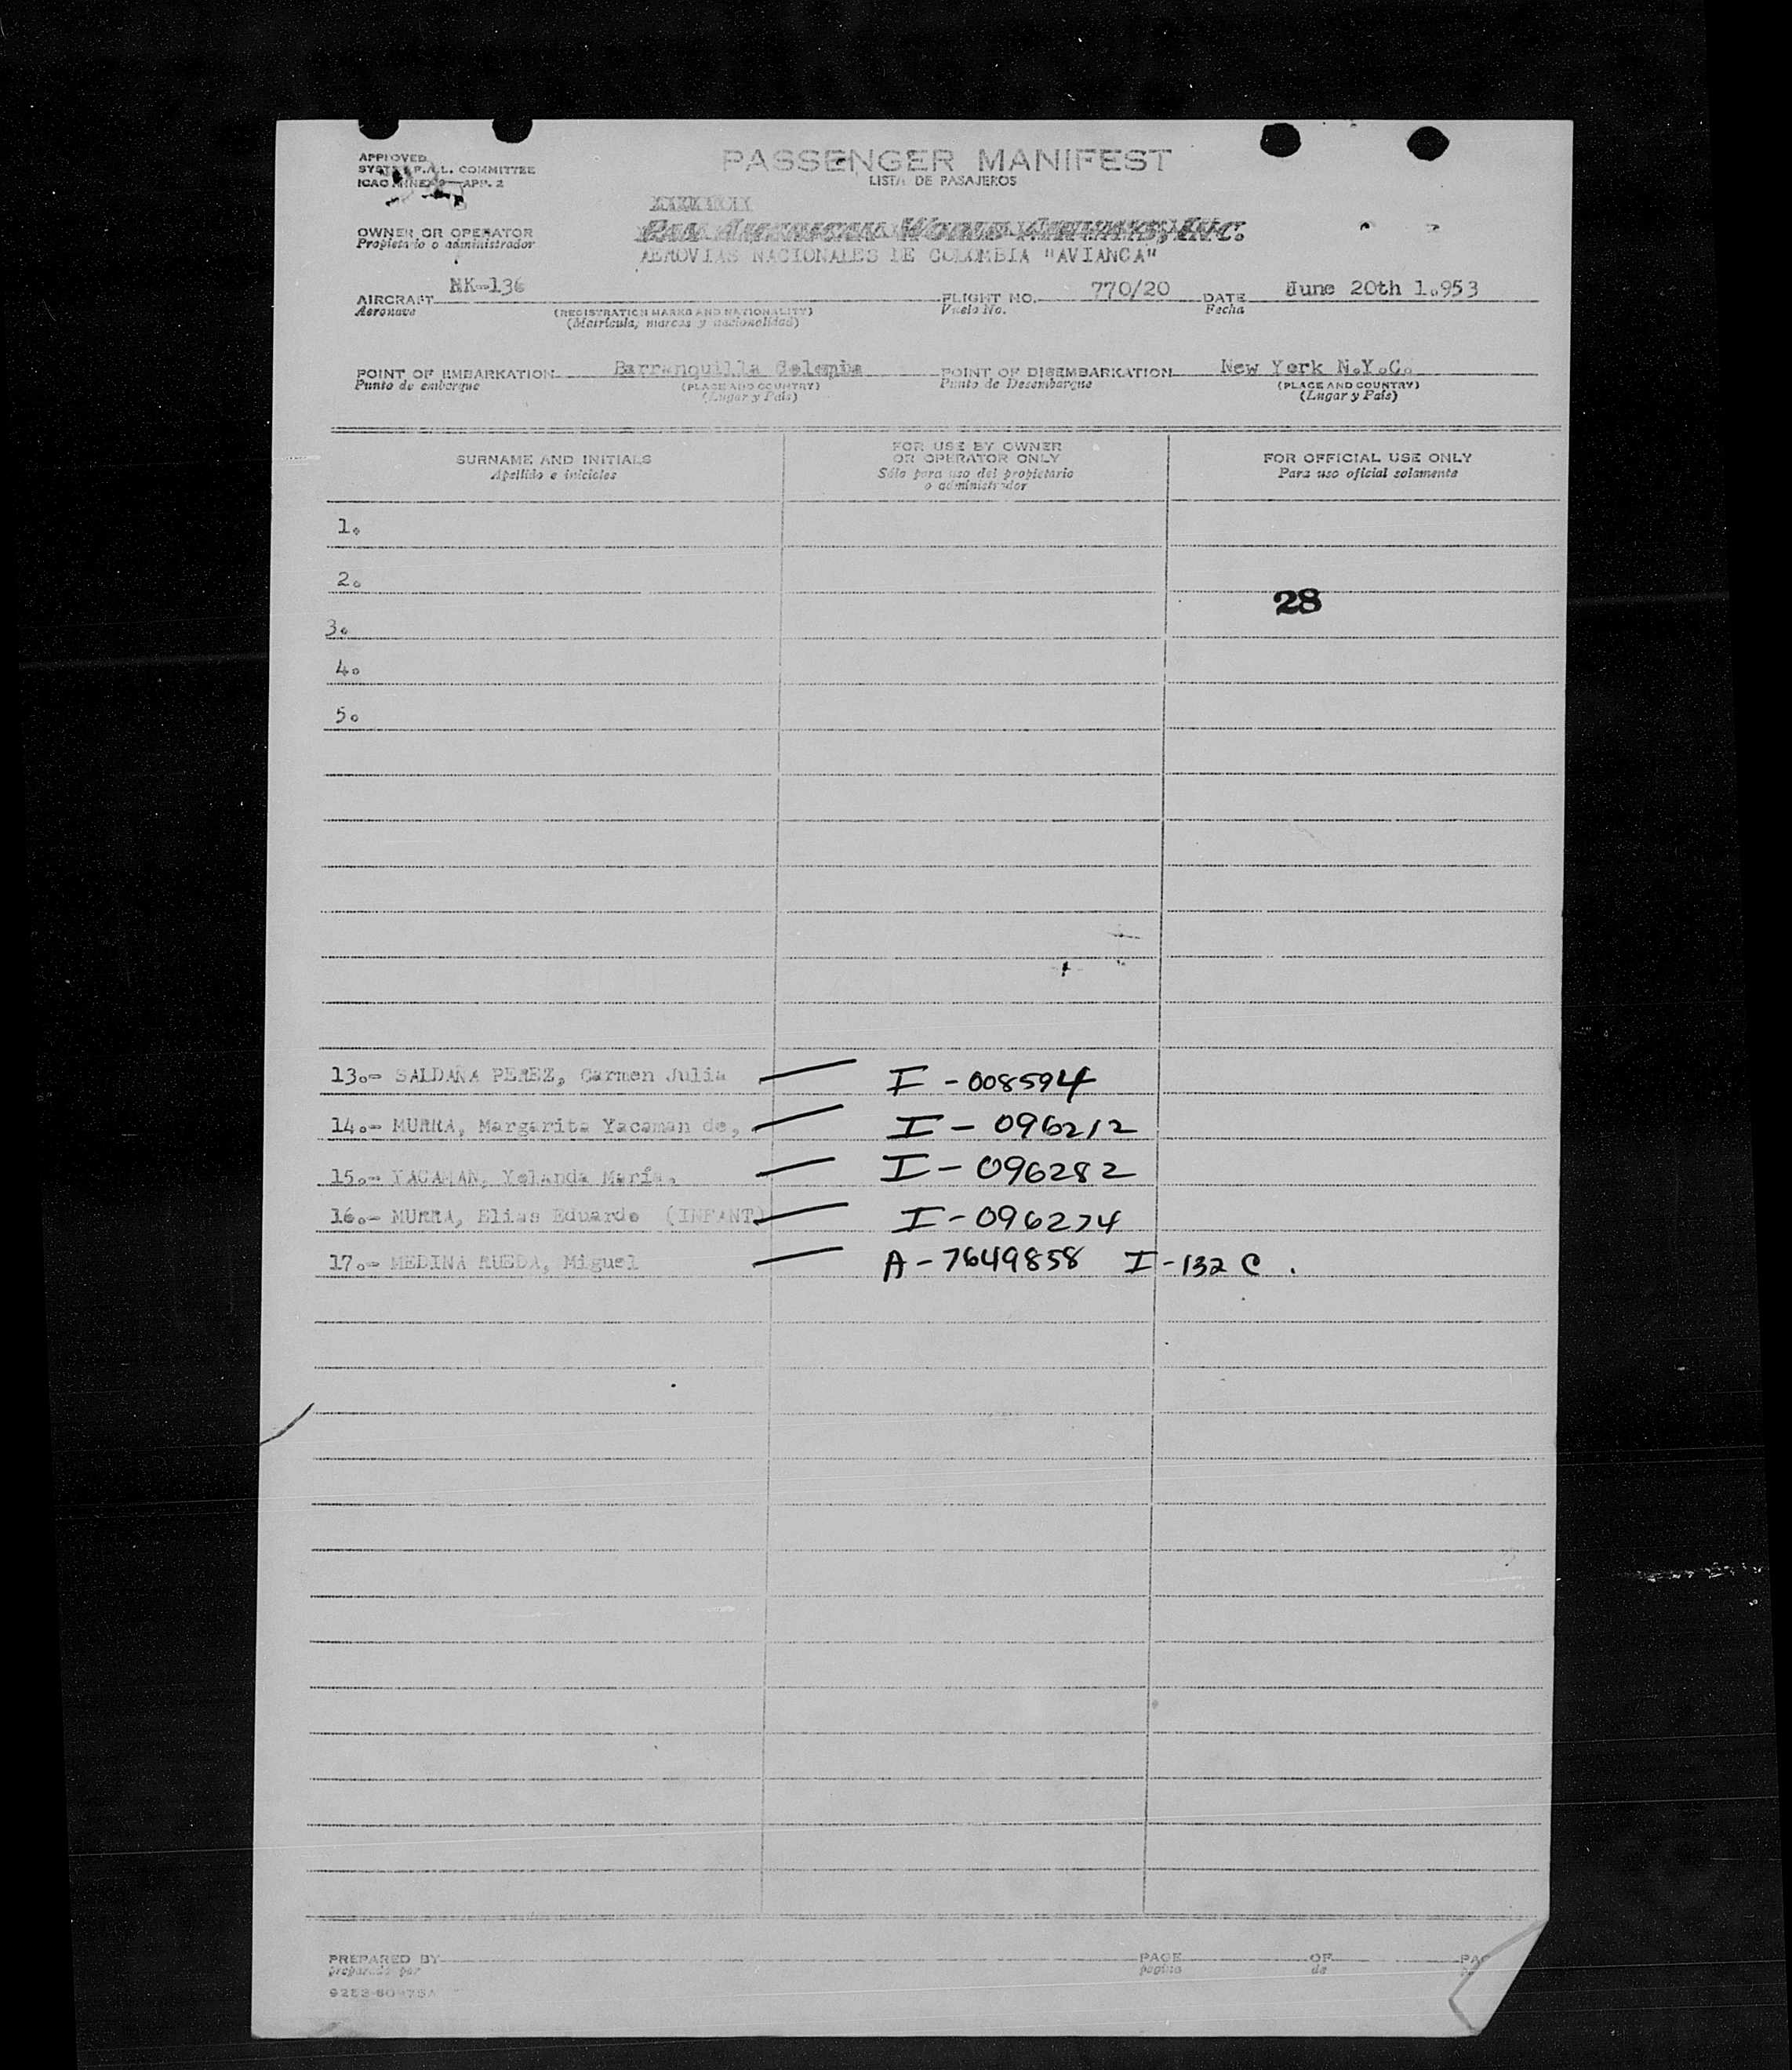 APPROVED
PASSENGER MANIFEST
COMMITTEE
LISTA DE PASAJEROS
ICAO ANNEX 9—APP. 2
OWNER OR OPERATOR
Pan American World Airways, Inc.
Propietario o administrador
AEROVIAS NACIONALES DE COLOMBIA "AVIANCA"
AIRCRAFT NK-136 FLIGHT NO. 770/20 DATE June 20th 1.953
Aeronave (REGISTRATION MARKS AND NATIONALITY) Vuelo No. Fecha
(Matrícula, marcas y nacionalidad)
POINT OF EMBARKATION Barranquilla Colombia POINT OF DISEMBARKATION New York N.Y.C.
Punto de embarque (PLACE AND COUNTRY) Punto de Desembarque (PLACE AND COUNTRY)
(Lugar y País) (Lugar y País)
SURNAME AND INITIALS FOR USE BY OWNER OR OPERATOR ONLY FOR OFFICIAL USE ONLY
Apellido e iniciales Sólo para uso del propietario o administrador Para uso oficial solamente
1.
2.
28
3.
4.
5.
13.- SALDAÑA PEREZ, Carmen Julia — I-008594
14.- MURRA, Margarita Yacaman de, — I-096212
15.- YACAMAN, Yolanda María. — I-096282
16.- MURRA, Elias Eduardo (INFANT) — I-096274
17.- MEDINA RUEDA, Miguel — A-7649858 I-132 C.
PREPARED BY PAGE OF
preparado por página de